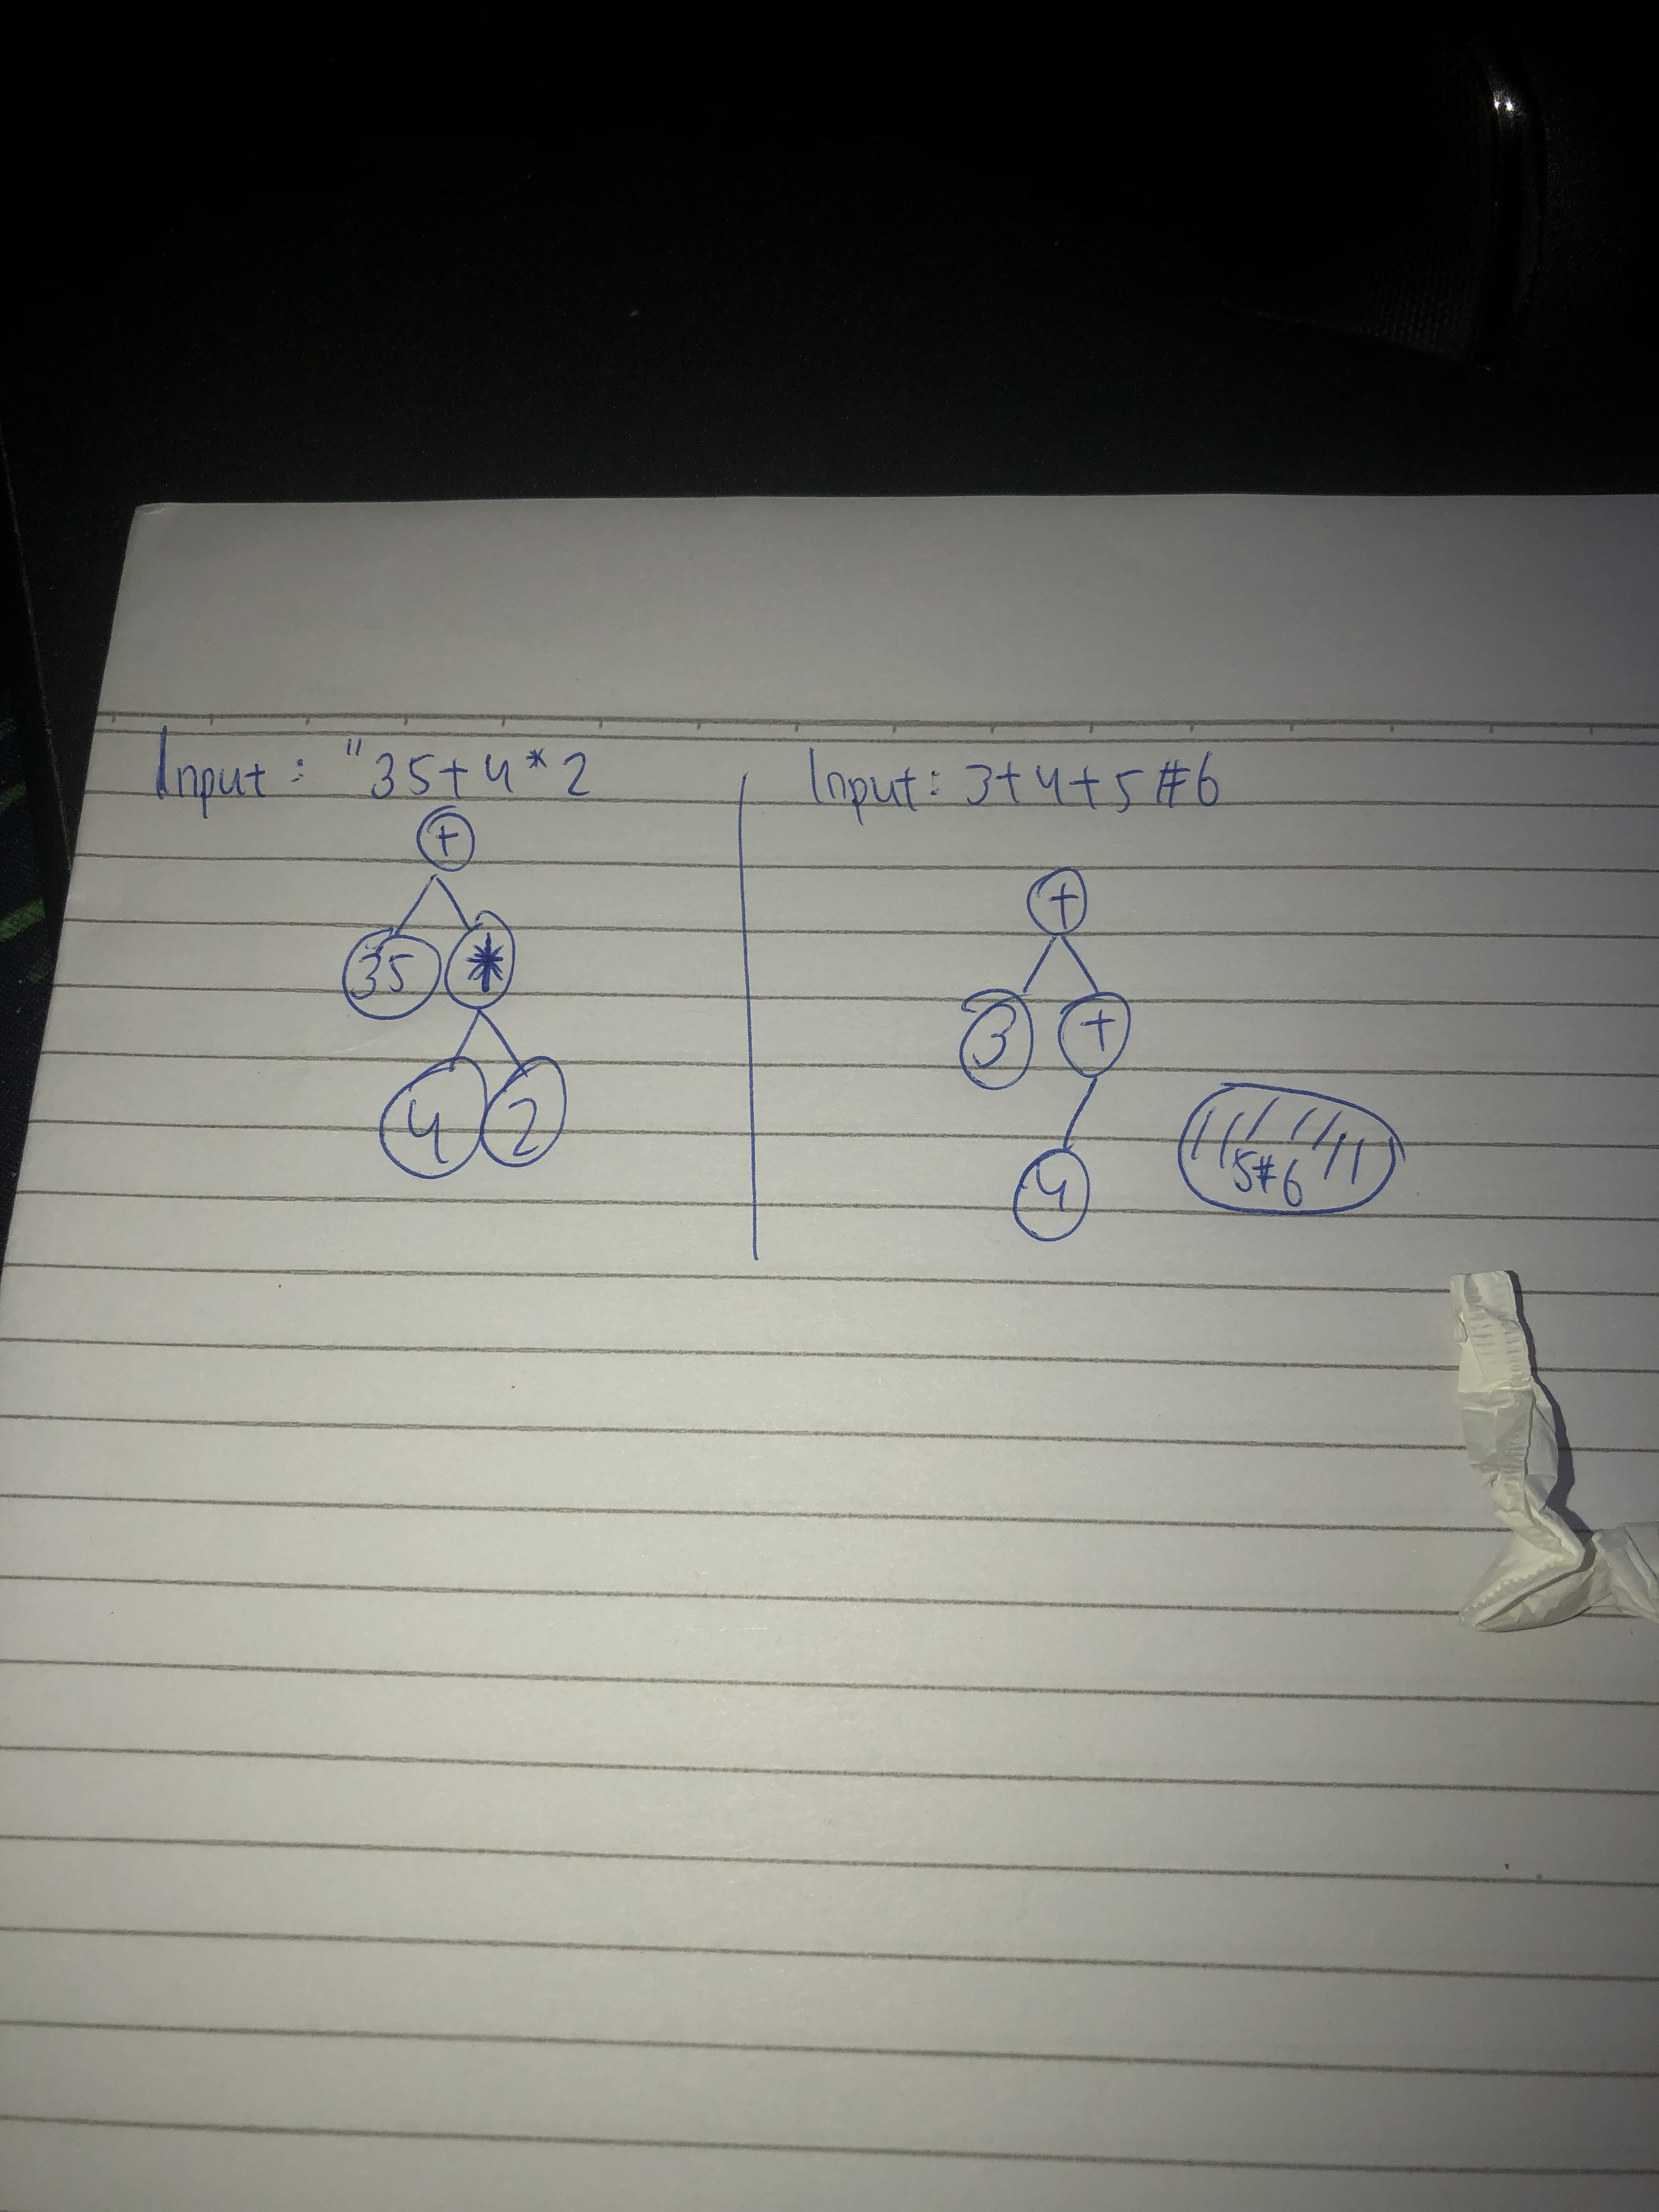 Input: "35+4*2
+
35 *
4 2
Input: 3+4+5#6
+
3 +
4
5#6